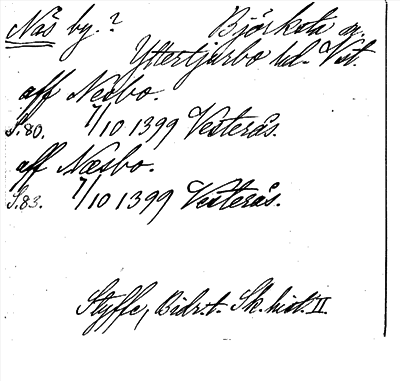 Näs by? Björksta sn.
Yttertjurbo hd. Vst.
aff Nesbo.
S.80. 7/10 1399 Vesterås.
aff Næsbo.
S.83. 7/10 1399 Vesterås.
Styffe, Bidr. t. Sk. hist. II.